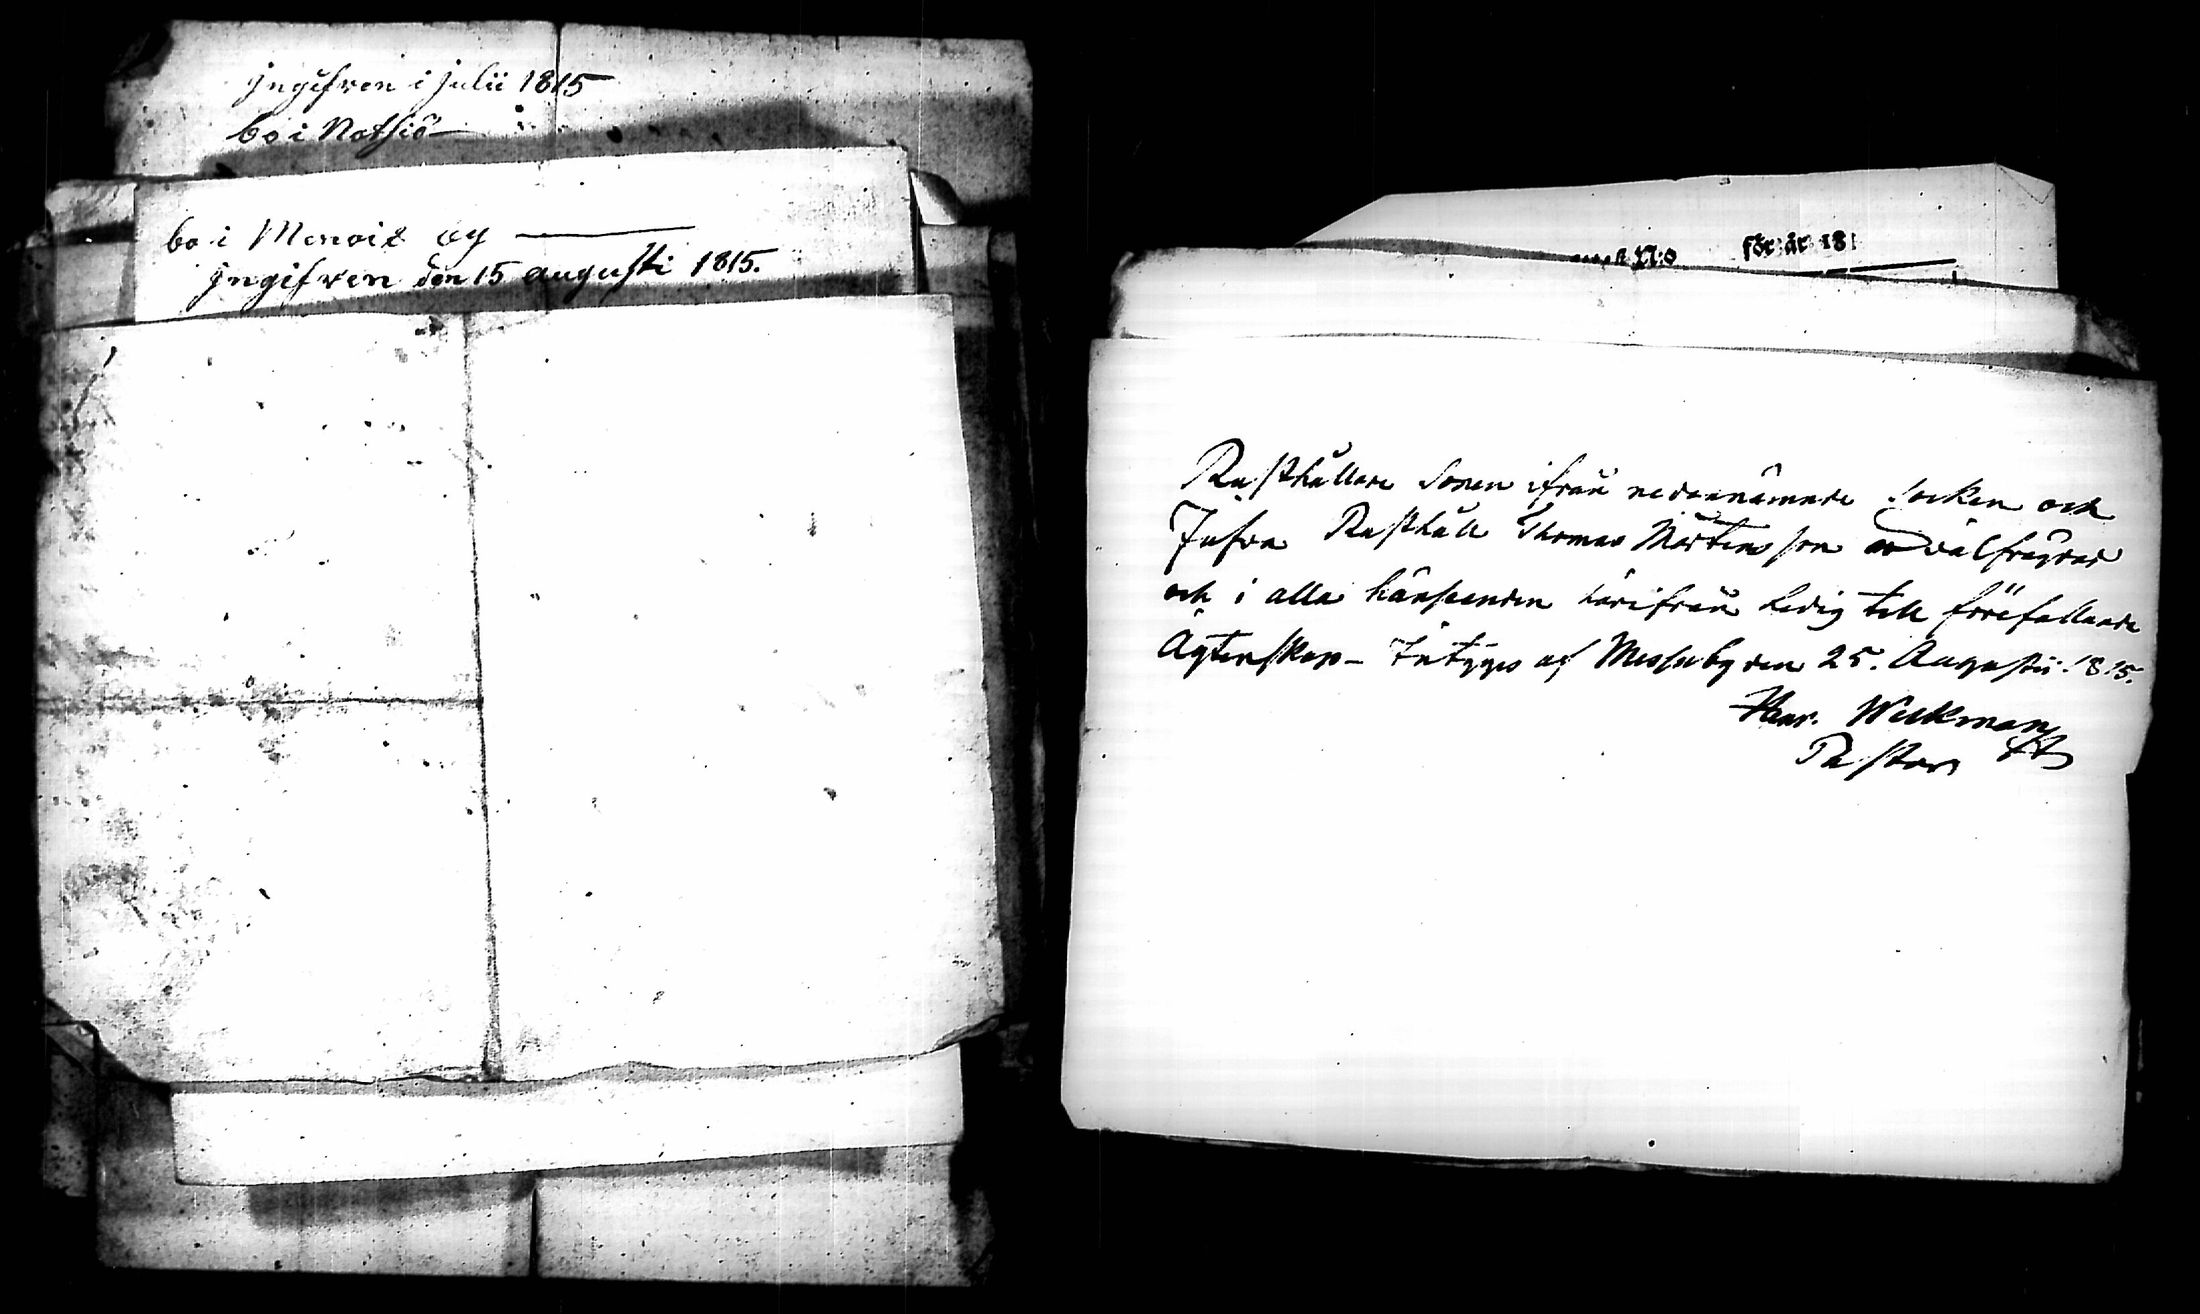 Jngifven i Julii 1815
bo i Notsiö
bo i Monois og
Jngifven den 15 augusti 1815.
N:o för år 181
Rusthållare Sonen ifrån nedannämnde Socken och
Jufva Rusthåll Thomas Mårtensson är välfrägdad
och i alla hänseenden härifrån ledig till föréfallande
Ägtenskap – Intygas af Messuby den 25. Augustii. 1815.
Henr. Wilkman
Pastor